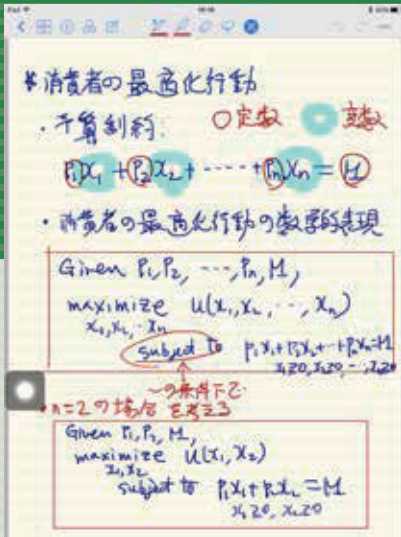 *消費者の最適化行動
・予算制約: ○定数 変数
P₁x₁ + P₂x₂ + ----- + Pₙxₙ = M
・消費者の最適化行動の数学的表現
Given P₁, P₂, ---, Pₙ, M,
maximize u(x₁, x₂, --, xₙ)
x₁, x₂, -- xₙ
subject to P₁x₁+P₂x₂+--+Pₙxₙ=M
x₁≥0, x₂≥0, --, xₙ≥0
〜の条件下で
・n=2の場合を考える
Given P₁, P₂, M,
maximize u(x₁, x₂)
x₁, x₂
subject to P₁x₁+P₂x₂=M
x₁≥0, x₂≥0